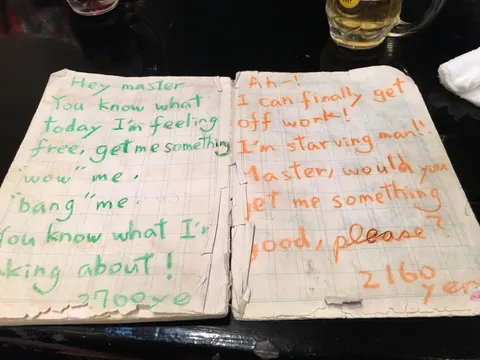 Hey master
You know what
today I'm feeling
free, get me something
"wow" me.
"bang" me.
You know what I'm
aking about!
2700ye
Ah-!
I can finally get
off work!
I'm starving man!!
Master, would you
get me something
good, please?
2160
yen